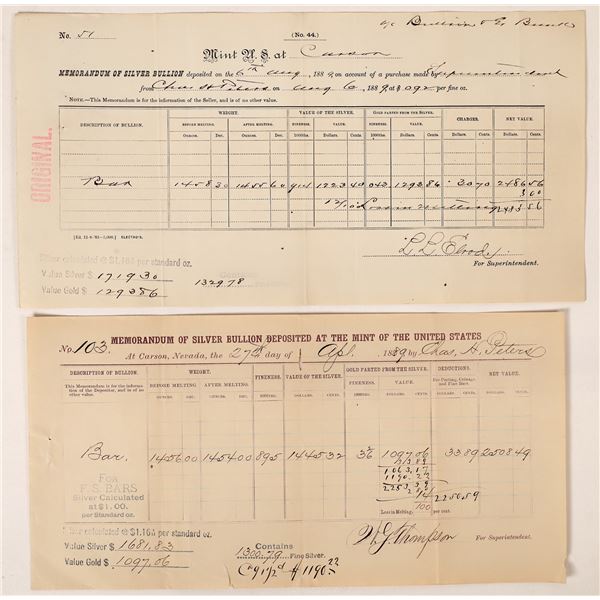 a/c Bullion & Ex Bundle
No. 51
(No. 44.)
Mint U.S. at Carson
MEMORANDUM OF SILVER BULLION deposited on the 6th Aug 1889, on account of a purchase made by Superintendent
from Chas H Peters on Aug 6 1889, at $ .092 per fine oz.
NOTE.—This Memorandum is for the information of the Seller, and is of no other value.
ORIGINAL.
DESCRIPTION OF BULLION. WEIGHT. VALUE OF THE SILVER. GOLD PARTED FROM THE SILVER. CHARGES. NET VALUE.
BEFORE MELTING. AFTER MELTING. FINENESS. VALUE. FINENESS. VALUE.
Ounces. Dec. Ounces. Dec. 1000ths. Dollars. Cents. 1000ths. Dollars. Cents. Dollars. Cents. Dollars. Cents.
Bar 1458 30 1455 60 914 1223 40 043 1293 86 30 70 2486 56
3 00
Loss in Melting 2483 56
[Ed. 12-4-'85—1,000.] ELECTRO'S.
L. L. Elrod,
For Superintendent.
Silver calculated @ $1.16 4 per standard oz.
Value Silver $ 1719 30
Value Gold $ 1293 86
Contains
1329.78
MEMORANDUM OF SILVER BULLION DEPOSITED AT THE MINT OF THE UNITED STATES
No. 103.
At Carson, Nevada, the 27th day of Apl. 1889 by Chas. H. Peters
DESCRIPTION OF BULLION. WEIGHT. FINENESS. VALUE OF THE SILVER. GOLD PARTED FROM THE SILVER. DEDUCTIONS. NET VALUE.
This Memorandum is for the information of the Depositor, and is of no other value.
BEFORE MELTING. AFTER MELTING. FINENESS. VALUE. For Parting, Coinage and Fine Bars.
OUNCES. DEC. OUNCES. DEC. DOLLARS. CENTS. DOLLARS. CENTS. DOLLARS. CENTS. DOLLARS. CENTS.
Bar. 1456 00 1454 00 895 1445 32 36½ 1097 06 33 89 2508 49
33 89
1063,17
1190.22
2253.39
2250.59
FOR
F. S. BARS
Silver Calculated
at $1.00.
per Standard oz.
Loss in Melting, 14/100 per cent.
Silver calculated @ $1.16 4 per standard oz.
Value Silver $ 1681.83
Value Gold $ 1097.06
Contains
1300.79 Fine Silver.
@ 91½¢ $1190.22
W. G. Thompson
For Superintendent.